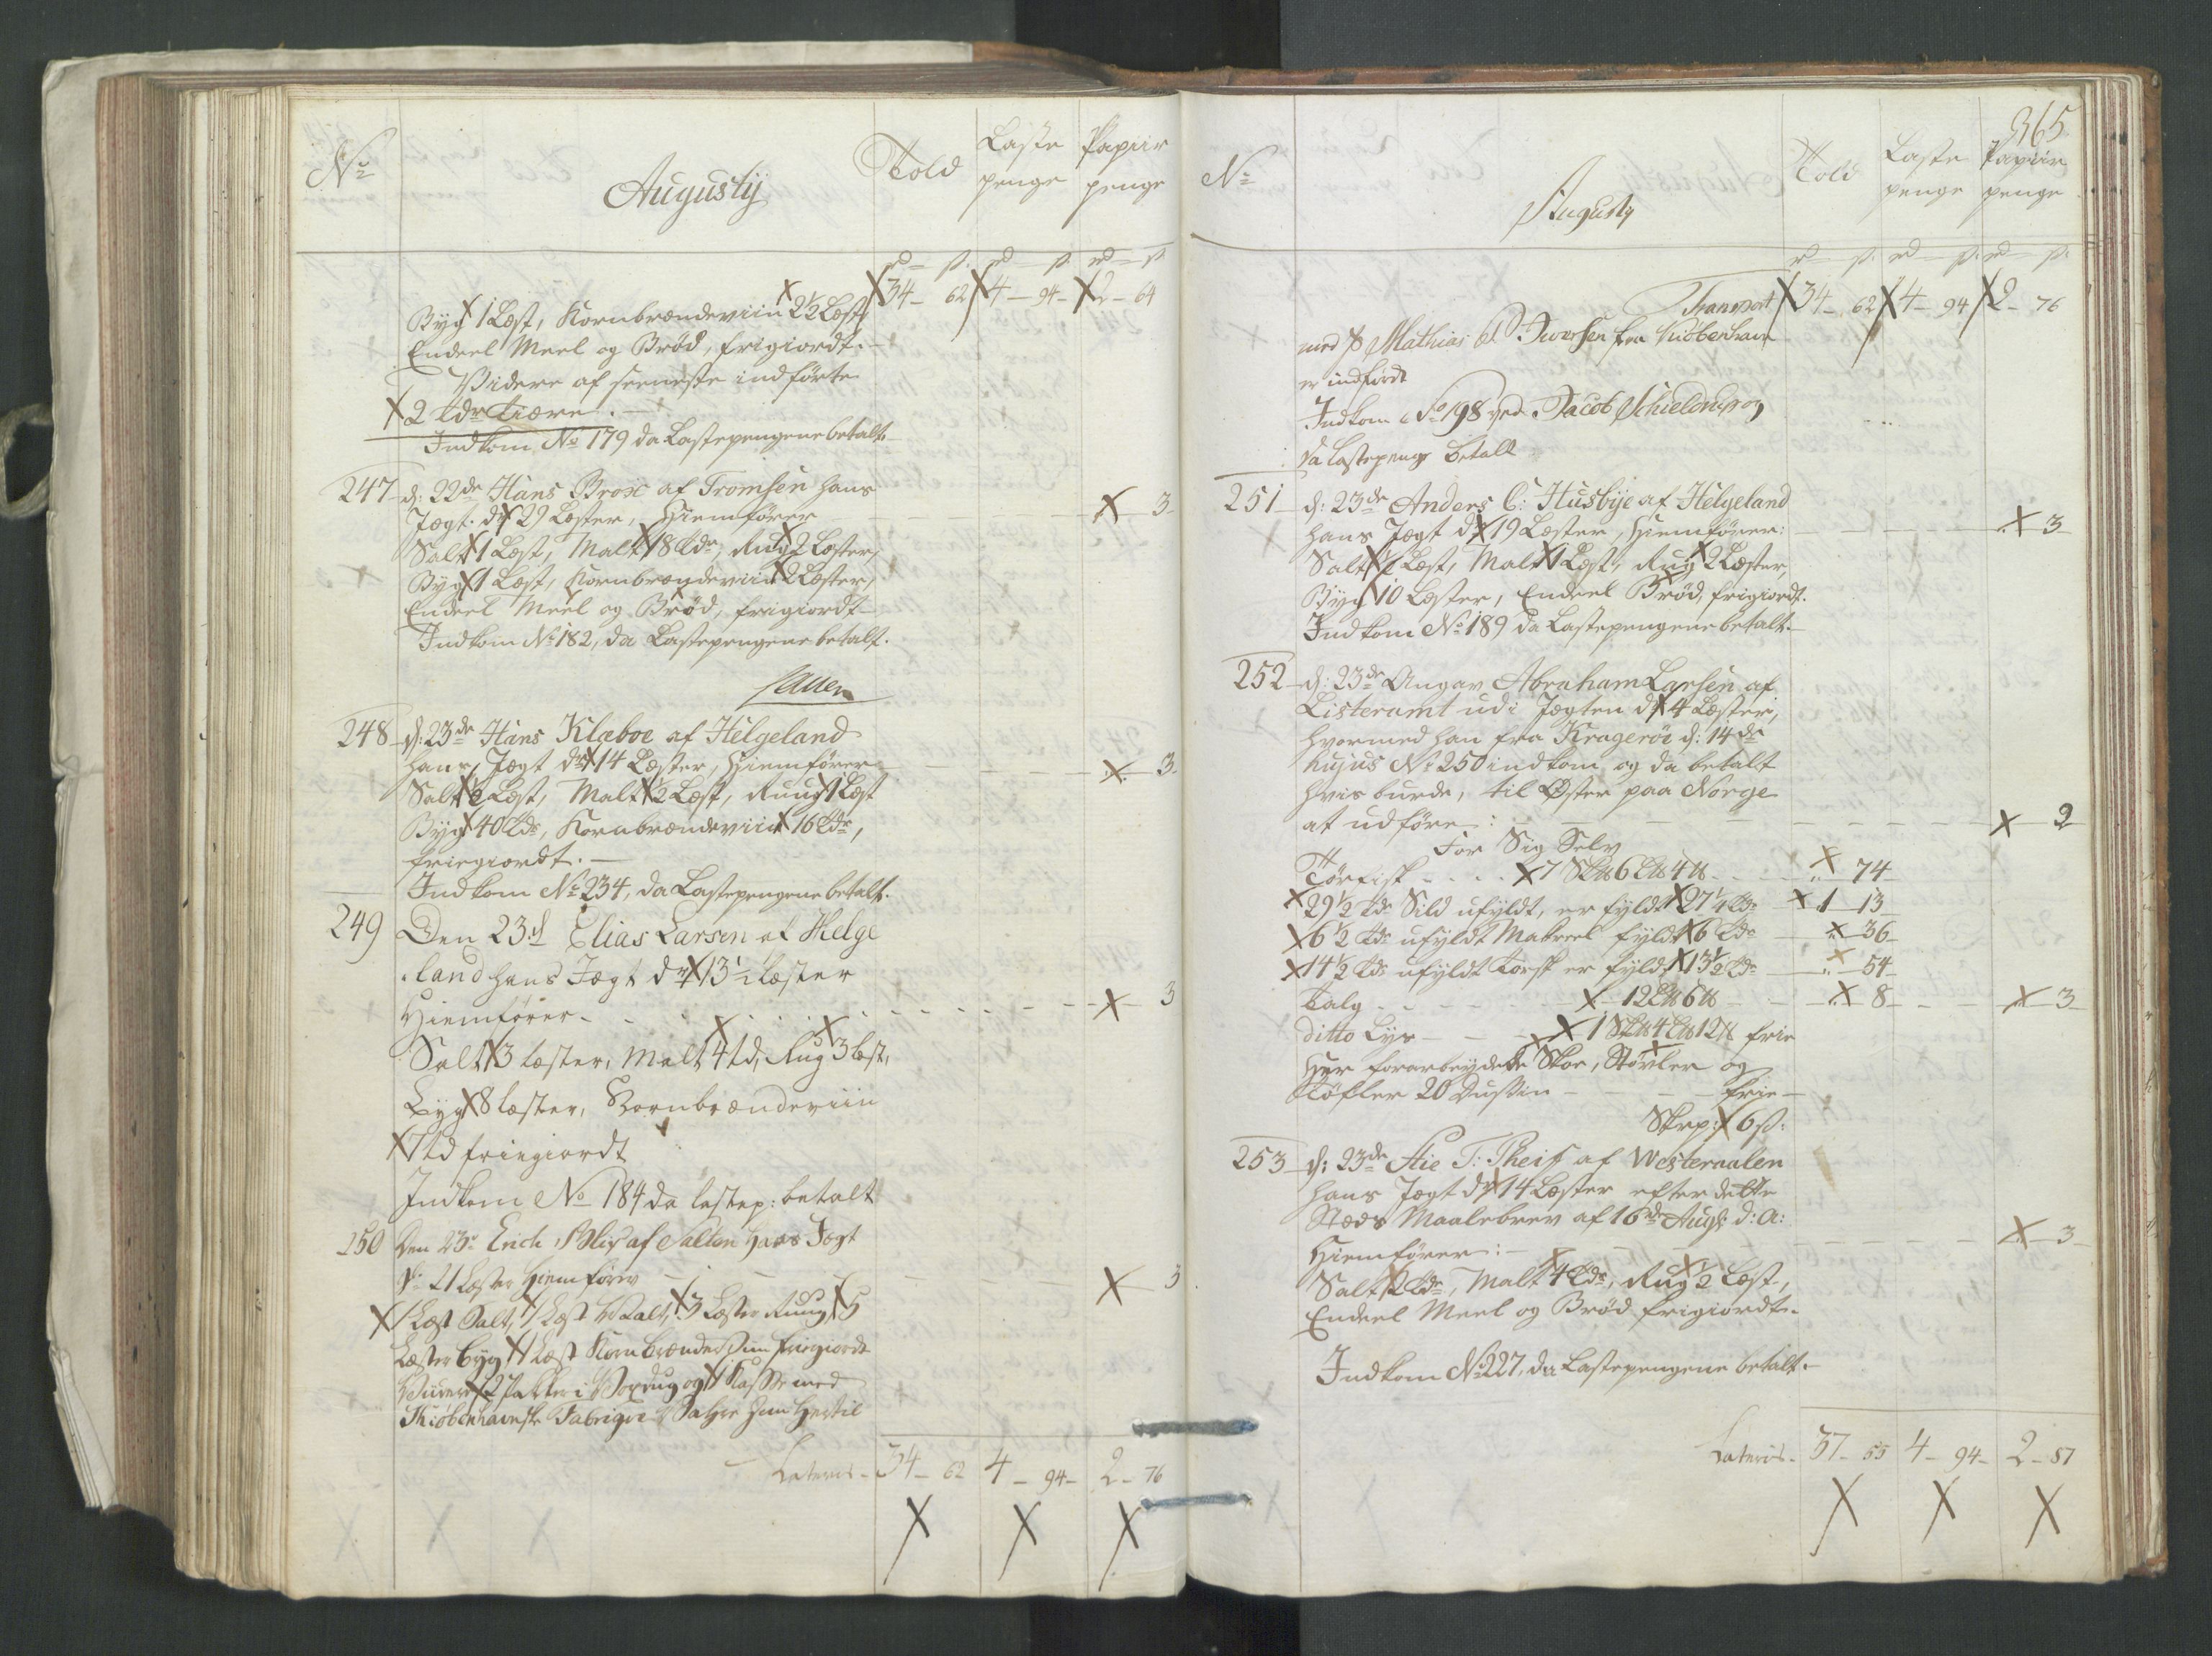 No
Augusty
Told
Laste
penge
Papiir
penge
rd ß. rd ß. rd ß
34 - 62 4 - 94 - 2 - 64
Byg 1 Læst, Kornbrændeviin 2½ Læst,
Endeel Meel og Brød, frigiordt.
Videre af seeneste indførte
2 tdr tiære.
Indkom No 179 da Lastepengene betalt.
247 d: 22de Hans Brox af Tromsen hans
Jægt. dr 29 Læster, Hiemfører - 3
Salt 1 Læst, Malt 18 tdr, Rug 2 Læster,
Byg 1 Læst, Kornbrændeviin 2 Læster,
Endeel Meel og Brød, frigiordt
Indkom No 182, da Lastepengene betalt.
248 d: 23de Hans Klæboe af Helgeland
hans Jægt dr 14 Læster, Hiemfører 3
Salt ½ Læst, Malt ½ Læst, Ruug 1 Læst
Byg 40 tdr, Kornbrændeviin 16 tdr,
friegiordt.
Indkom No 234, da Lastepengene betalt.
249 Den 23d Elias Larsen af Helge
land hans Jægt dr 13½ læster
Hiemfører 3
Salt 3 læster, Malt 4 td, Rug 3 lest,
Byg 8 læster, Kornbrændeviin
7 td friegiordt
Indkom No 184 da lestep: betalt
250 Den 23de Erich Blix af Salten Hans Jægt
dr 21 Læster Hiemfører 3
1 Læst Salt, 1 Læst Malt, 3 Læster Ruug, 5
Læster Byg, 1 Læst Kornbrændeviin friegiordt
Videre 2 Pakker i Voxdug og 1 Kasse med
Kiøbenhavnske Fabriqve
Lateris - 34 - 62 4 - 94 - 2 - 76
365
No
Augusty
Told
Laste
penge
Papiir
penge
rd ß. rd ß. rd ß.
Transport 34 - 62 4 - 94 2 - 76
med Mathias Iversen fra Kiøbenhavn
er indført
Indkom No 198 ved Jacob Schielderup og
da Lastepenge betalt
251 d: 23de Anders C: Husbye af Helgeland
hans Jægt dr 19 Læster, Hiemfører: 3
Salt ½ Læst, Malt 1 Læst, Rug 2 Læster,
Byg 10 Læster, Endeel Brød, frigiordt.
Indkom No 189 da Lastepengene betalt.
252 d: 23de Angav Abraham Larsen af
Listeramt udi Jægten dr 4 Læster,
hvormed han fra Kragerøe d: 14de
hujus No 250 indkom og da betalt
hvis burde, til Øster paa Norge
at udføre: 2
For Sig Selv
Tørfisk - - - 7 Sk℔ 6 L℔ 4 ℔ - 74
29½ tdr Sild ufyldt, er fyldt 27¼ tdr 1 13
6½ tdr ufyldt Makreel fyldt 6 tdr 36
14½ tdr ufyldt Torsk er fyldt 13½ tdr 54
Talg - - - 12 L℔ 6 ℔ - 8 - 3
ditto Lys - - 1 Sk℔ 4 L℔ 12 ℔ frie
Her forarbeydede Skoe, Støvler og
Tøfler 20 Dusin - - - frie
Skrp: 6 ß:
253 d: 23de T: Theiss af Westeraalen
hans Jægt dr 14 Læster efter dette
Steds Maalebrev af 16de Aug: d: A:
Hiemfører: 3
Salt 2 tdr, Malt 4 tdr, Rug ½ Læst,
Endeel Meel og Brød frigiordt.
Indkom No 227, da Lastepengene betalt.
Lateris - 37 - 55 4 - 94 - 2 - 87